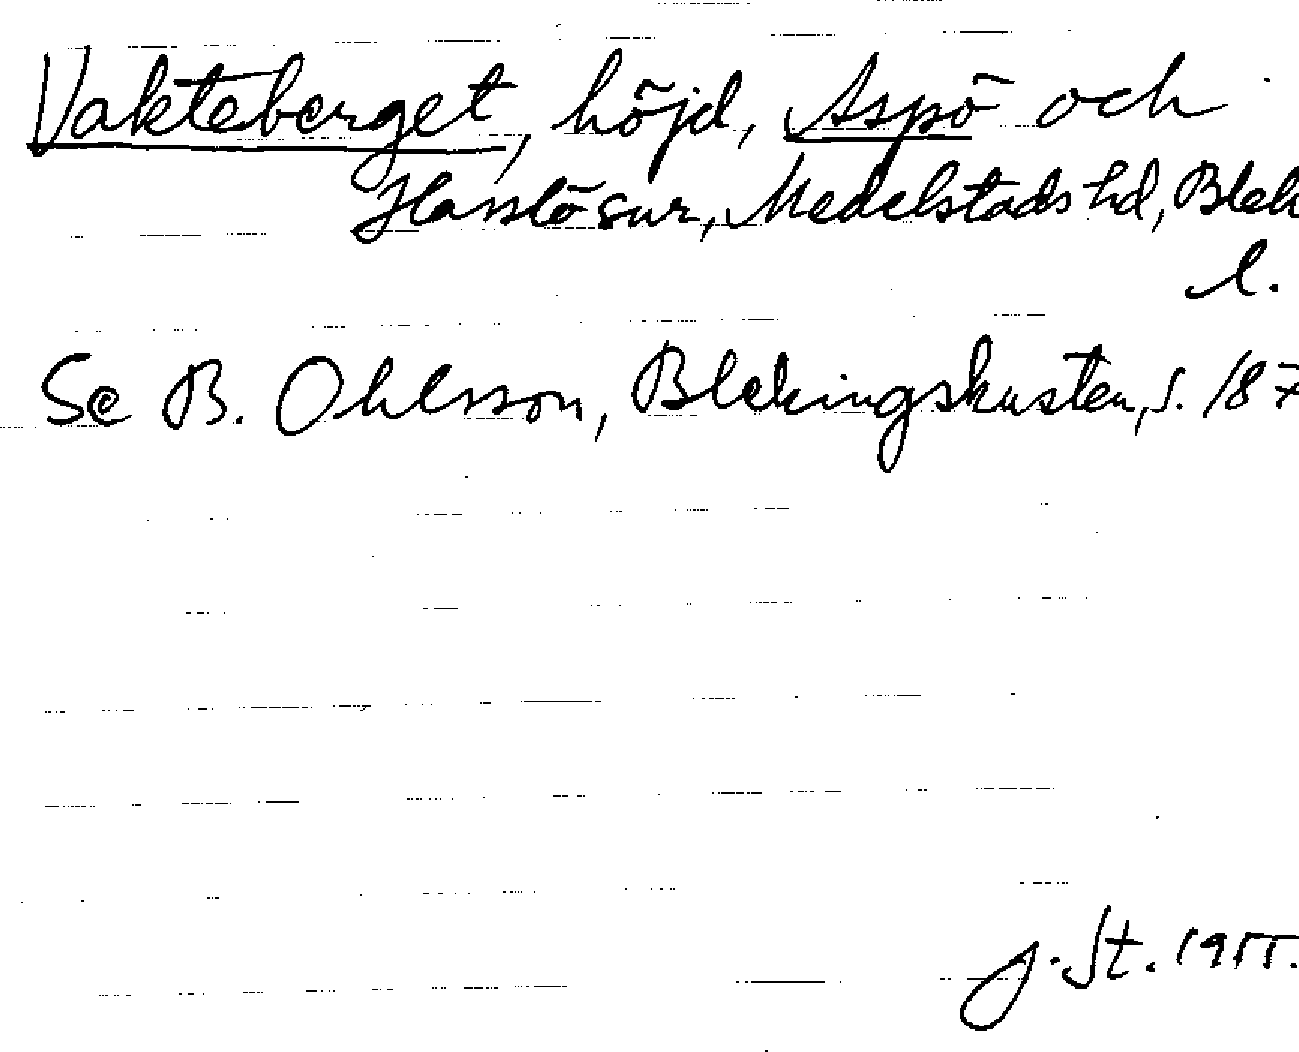 Vakteberget, höjd, Aspö och
Hasslö snr, Medelstads hd, Blek
l.
Se B. Ohlsson, Blekingskusten, s. 187
J. St. 1955.